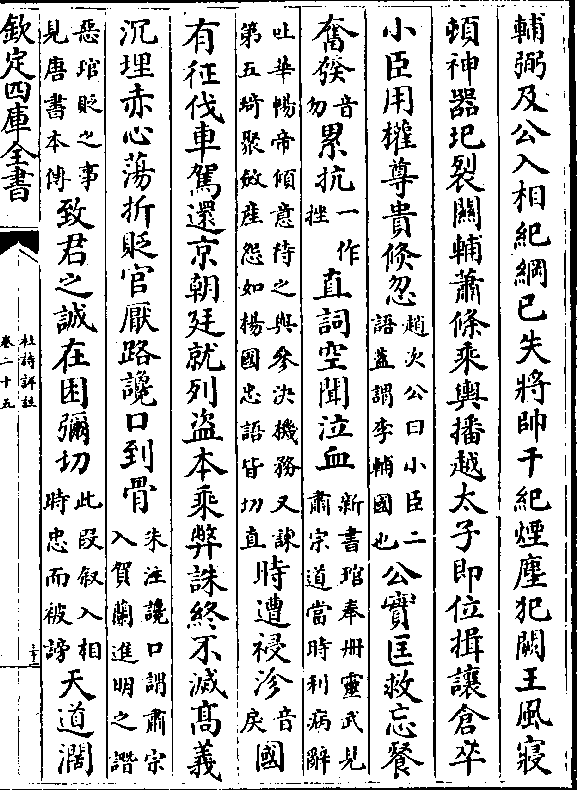 輔弼及公入相紀綱已失將帥干紀煙塵犯闕王風寢
頓神器圮裂關輔蕭條乘輿播越太子即位揖讓倉卒
小臣用權尊貴倏忽趙次公曰小臣二語葢謂李輔國也公實匡救忘餐
奮發音勿累抗一作挫直詞空聞泣血新書琯奉冊靈武見肅宗道當時利病辭
吐華暢帝傾意待之與參決機務又諌第五琦聚斂産怨如楊國忠語皆切直時遭祲沴音戾國
有征伐車駕還京朝廷就列盗本乘弊誅終不滅髙義
沉埋赤心蕩折貶官厭路讒口到骨朱注讒口謂肅宗入賀蘭進明之譖
惡琯貶之事見唐書本傳致君之誠在困彌切此段叙入相時忠而被謗天道濶
欽定四庫全書
杜詩詳註
卷二十五